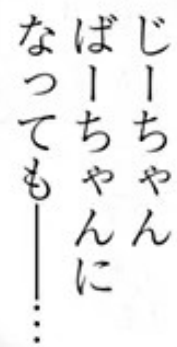 じーちゃん
ばーちゃんに
なっても――…